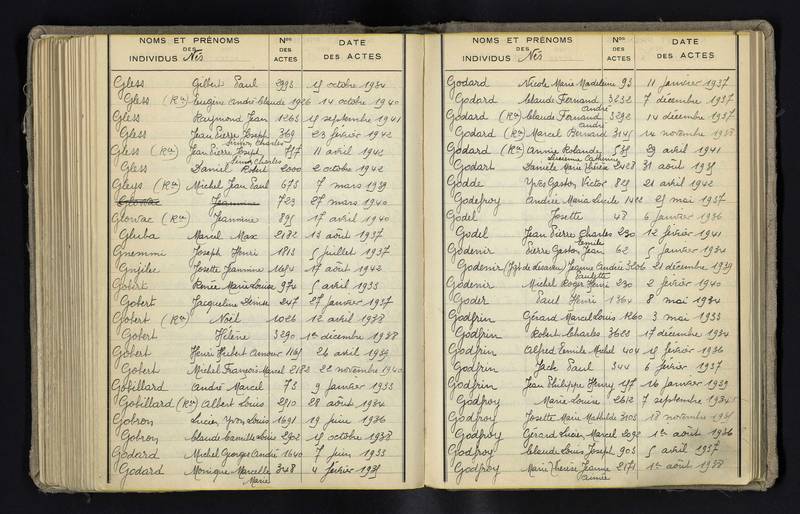 NOMS ET PRÉNOMS
DES
INDIVIDUS Nés
Nos
DES
ACTES
DATE
DES ACTES
Gless Gilbert Paul 2993 15 octobre 1934
Gless (Ron) Eugène André Claude 1926 14 octobre 1940
Gless Raymond Jean 1263 15 septembre 1941
Gless Jean Pierre Joseph 369 23 février 1942
Simon Charles
Gless (Ron) Jean Pierre Joseph 757 11 avril 1942
Simon Charles
Gless Daniel René 2000 2 octobre 1942
Gleys (Ron) Michel Jean Paul 673 7 mars 1939
Glowac Jeannine 723 27 mars 1940
Glowac (Ron) Jeannine 895 17 avril 1940
Gluba Marcel Max 2182 13 août 1937
Gnemmi Joseph Henri 1813 5 juillet 1937
Gnjilec Josette Jeannine 1694 17 août 1942
Gobert Renée Marie Louise 974 5 avril 1933
Gobert Jacqueline Denise 247 27 janvier 1937
Gobert (Ron) Noël 1026 12 avril 1938
Gobert Hélène 3290 1er décembre 1938
Gobert Henri Hubert Amour 1167 26 avril 1939
Gobert Michel François Marcel 2182 22 novembre 1940
Gobillard André Marcel 73 9 janvier 1933
Gobillard (Ron) Albert Louis 2510 28 août 1934
Gobron Lucien Yvon Louis 1691 19 juin 1936
Gobron Claude Camille Louis 2902 15 octobre 1938
Godard Michel Georges André 1640 7 juin 1933
Godard Monique Marcelle 348 4 février 1935
Marie
NOMS ET PRÉNOMS
DES
INDIVIDUS Nés
Nos
DES
ACTES
DATE
DES ACTES
Godard Nicole Marie Madeleine 93 11 janvier 1937
Godard Claude Fernand 3232 7 décembre 1937
André
Godard (Ron) Claude Fernand 3292 14 décembre 1937
André
Godard (Ron) Marcel Bernard 3145 14 novembre 1938
Godard (Ron) Annie Rolande 535 29 avril 1941
Lucienne
Godart Danièle Marie Thérèse 2428 31 août 1935
Godde Yves Gaston Victor 825 21 avril 1942
Godefroy Andrée Marie Lucile 1422 25 mai 1937
Godel Josette 48 6 janvier 1936
Godel Jean Pierre Charles 230 12 février 1941
Emile
Godenir Pierre Gaston Jean 62 5 janvier 1934
Godenir (Jgt de désaveu) Jeanne Andrée 3206 21 décembre 1939
Paulette
Godenir Michel Roger Henri 230 2 février 1940
Goder Paul Henri 1364 8 mai 1934
Godfrin Gérard Marcel Louis 1260 3 mai 1933
Godfrin Robert Charles 3623 17 décembre 1934
Godfrin Alfred Emile Michel 404 15 février 1936
Godfrin Jack Paul 344 6 février 1937
Godfrin Jean Philippe Henry 157 16 janvier 1939
Godfroy Marie Louise 2612 7 septembre 1934
Godfroy Josette Marie Mathilde 3103 18 novembre 1935
Godfroy Gérard Lucien Marcel 2092 1er août 1936
Godfroy Claude Louis Joseph 903 5 avril 1937
Godfroy Marie Thérèse Jeanne 2171 1er août 1938
Aimée